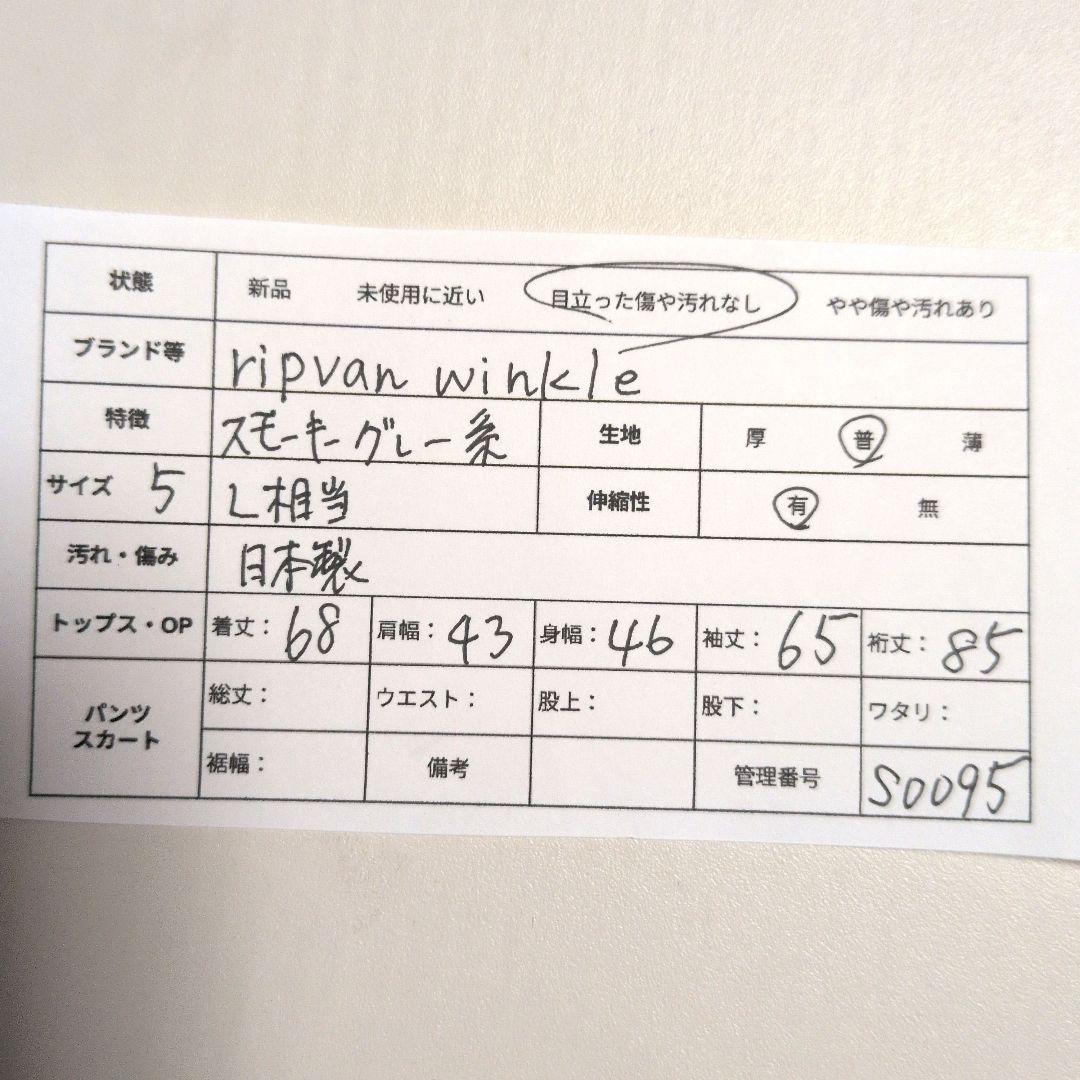 状態 新品 未使用に近い 目立った傷や汚れなし やや傷や汚れあり
ブランド等 ripvan winkle
特徴 スモーキーグレー系 生地 厚 普 薄
サイズ 5 L相当 伸縮性 有 無
汚れ・傷み 日本製
トップス・OP 着丈：68 肩幅：43 身幅：46 袖丈：65 裄丈：85
パンツ スカート 総丈： ウエスト： 股上： 股下： ワタリ：
裾幅： 備考 管理番号 S0095